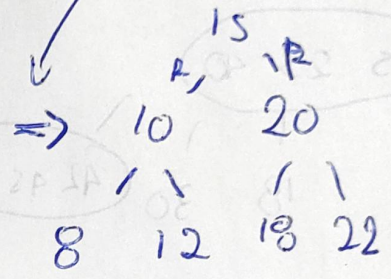 15
R R
⇒ 10 20
8 12 18 22